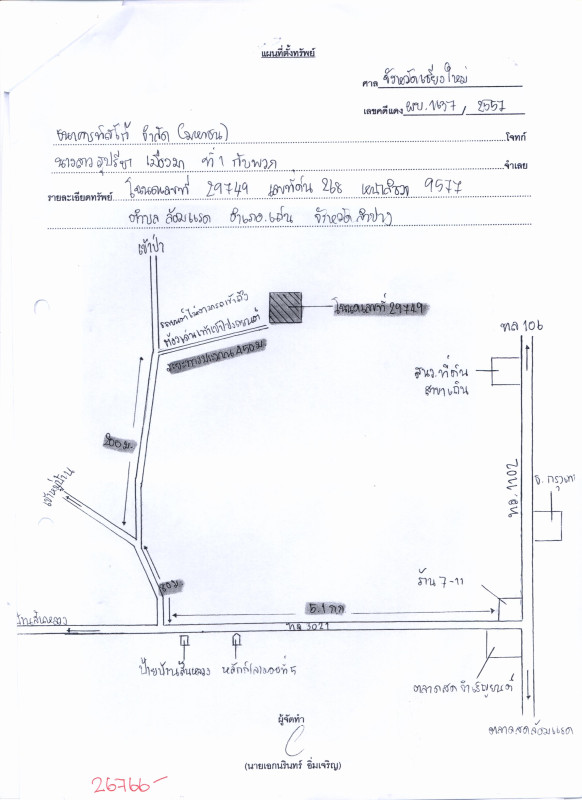 แผนที่ตั้งทรัพย์
ศาล จังหวัดเชียงใหม่
เลขคดีแดง ผบ.1637 / 2557
ธนาคารทิสโก้ จำกัด (มหาชน) โจทก์
นางสาว สุปรีชา ที่ 1 กับพวก จำเลย
รายละเอียดทรัพย์ โฉนดเลขที่ 29749 เลขที่ดิน 268 หน้าสำรวจ 9577
ตำบล ล้อมแรด อำเภอ เถิน จังหวัด ลำปาง
เข้าป่า
รถยนต์ไม่สามารถเข้าถึง
ต้องเดินเท้าเข้าไป
โฉนดเลขที่ 29749
ระยะทางประมาณ 450 ม.
ทล 106
สนง.ที่ดิน
สาขาเถิน
200 ม.
เข้าหมู่บ้าน
ทล.1102
ธ.กรุงเทพ
80 ม.
ร้าน 7-11
5.1 กม
บ้านสันหลวง
ทล 3021
ป้ายบ้านสันหลวง
หลักกิโลเมตรที่ 5
ตลาดสดจำเริญยนต์
ตลาดสดล้อมแรด
ผู้จัดทำ
(นายเอกนรินทร์ อิ่มเจริญ)
26766-